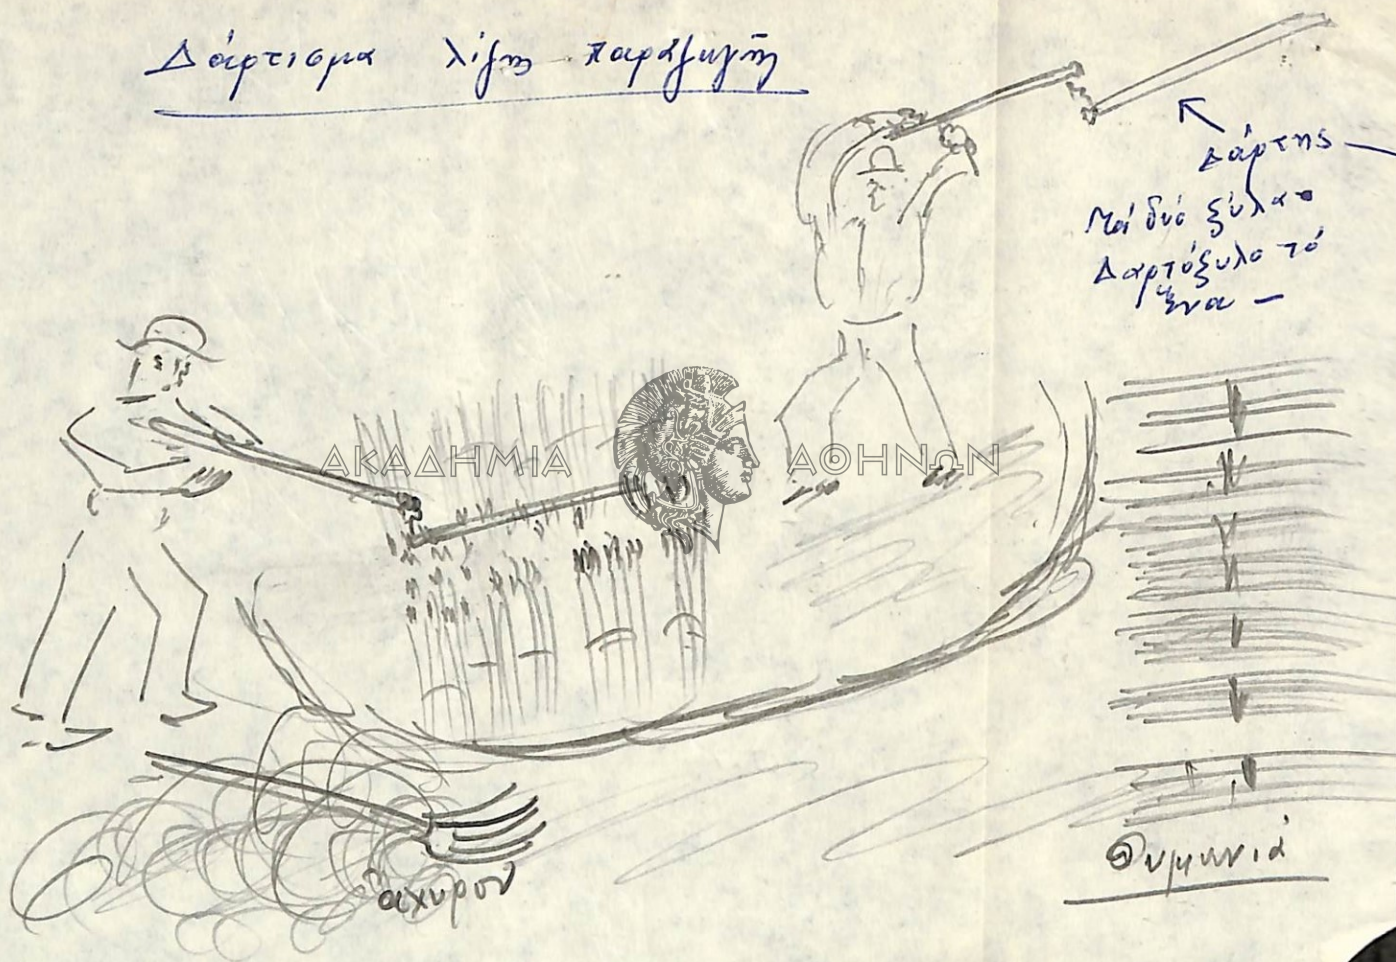 Δάρτισμα λίγης παραγωγῆς
Δάρτης —
Μέ δύο ξύλα -
Δαρτόξυλο τό
ἕνα —
ΑΚΑΔΗΜΙΑ ΑΘΗΝΩΝ
ἄχυρον
Θυμωνιά